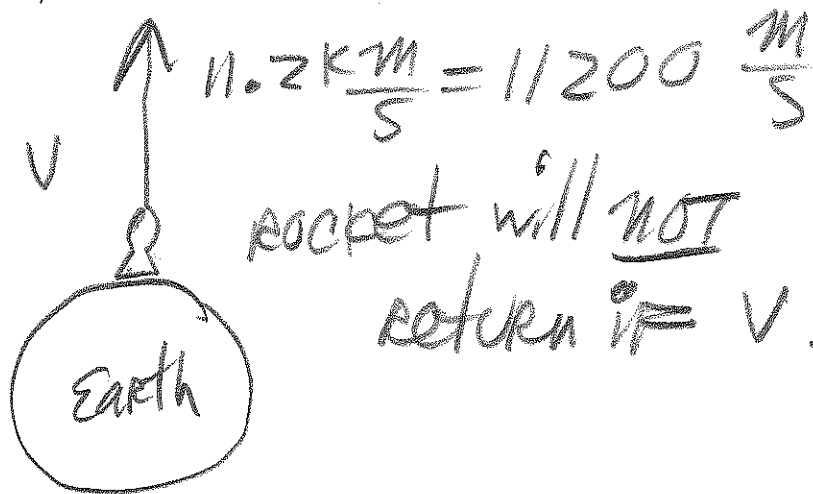 11.2 km/s = 11200 m/s
V
rocket will not
return if V.
Earth